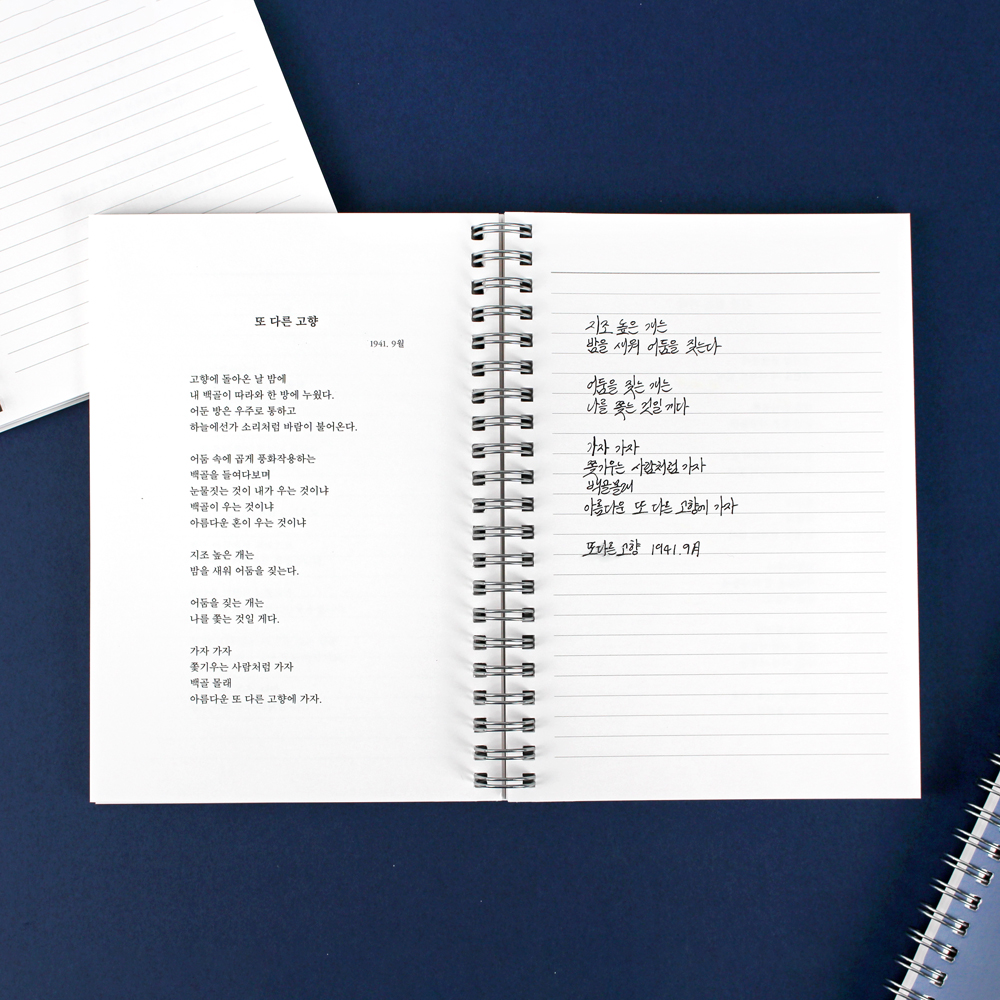 또 다른 고향
1941. 9월
고향에 돌아온 날 밤에
내 백골이 따라와 한 방에 누웠다.
어둔 방은 우주로 통하고
하늘에선가 소리처럼 바람이 불어온다.
어둠 속에 곱게 풍화작용하는
백골을 들여다보며
눈물짓는 것이 내가 우는 것이냐
백골이 우는 것이냐
아름다운 혼이 우는 것이냐
지조 높은 개는
밤을 새워 어둠을 짖는다.
어둠을 짖는 개는
나를 쫓는 것일 게다.
가자 가자
쫓기우는 사람처럼 가자
백골 몰래
아름다운 또 다른 고향에 가자.
지조 높은 개는
밤을 새워 어둠을 짖는다
어둠을 짖는 개는
나를 쫓는 것일 게다
가자 가자
쫓기우는 사람처럼 가자
백골몰래
아름다운 또 다른 고향에 가자
또다른 고향 1941.9月